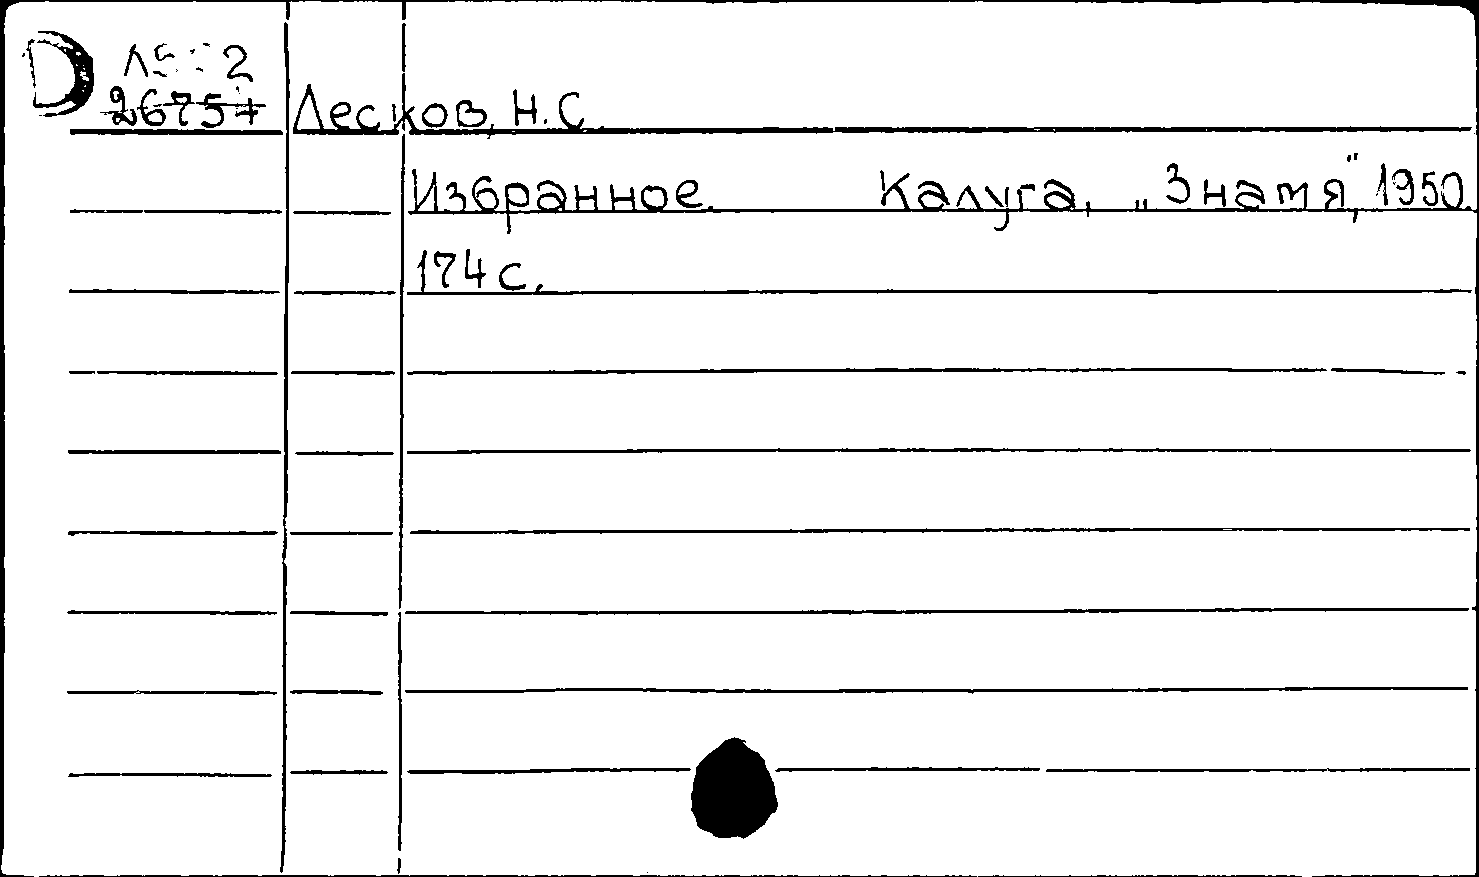 D
26757
Лесков, Н.С.
Избранное. Калуга, „Знамя", 1950.
174 с.